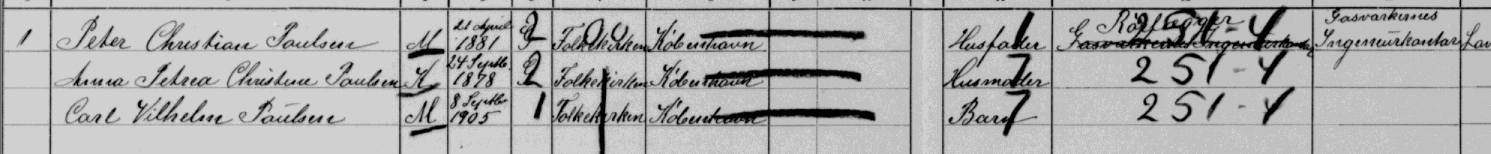 1 Peter Christian Paulsen M 21 April 1881 2 G Folkekirken København Husfader 1 Rørlægger 251-4 Gasværkernes Ingeniørkontor
Anna Petrea Christine Paulsen K 24 Septbr. 1878 2 Folkekirken København Husmoder 7 251-4
Carl Vilhelm Paulsen M 8 Septbr 1905 1 Folkekirken København Barn 7 251-4